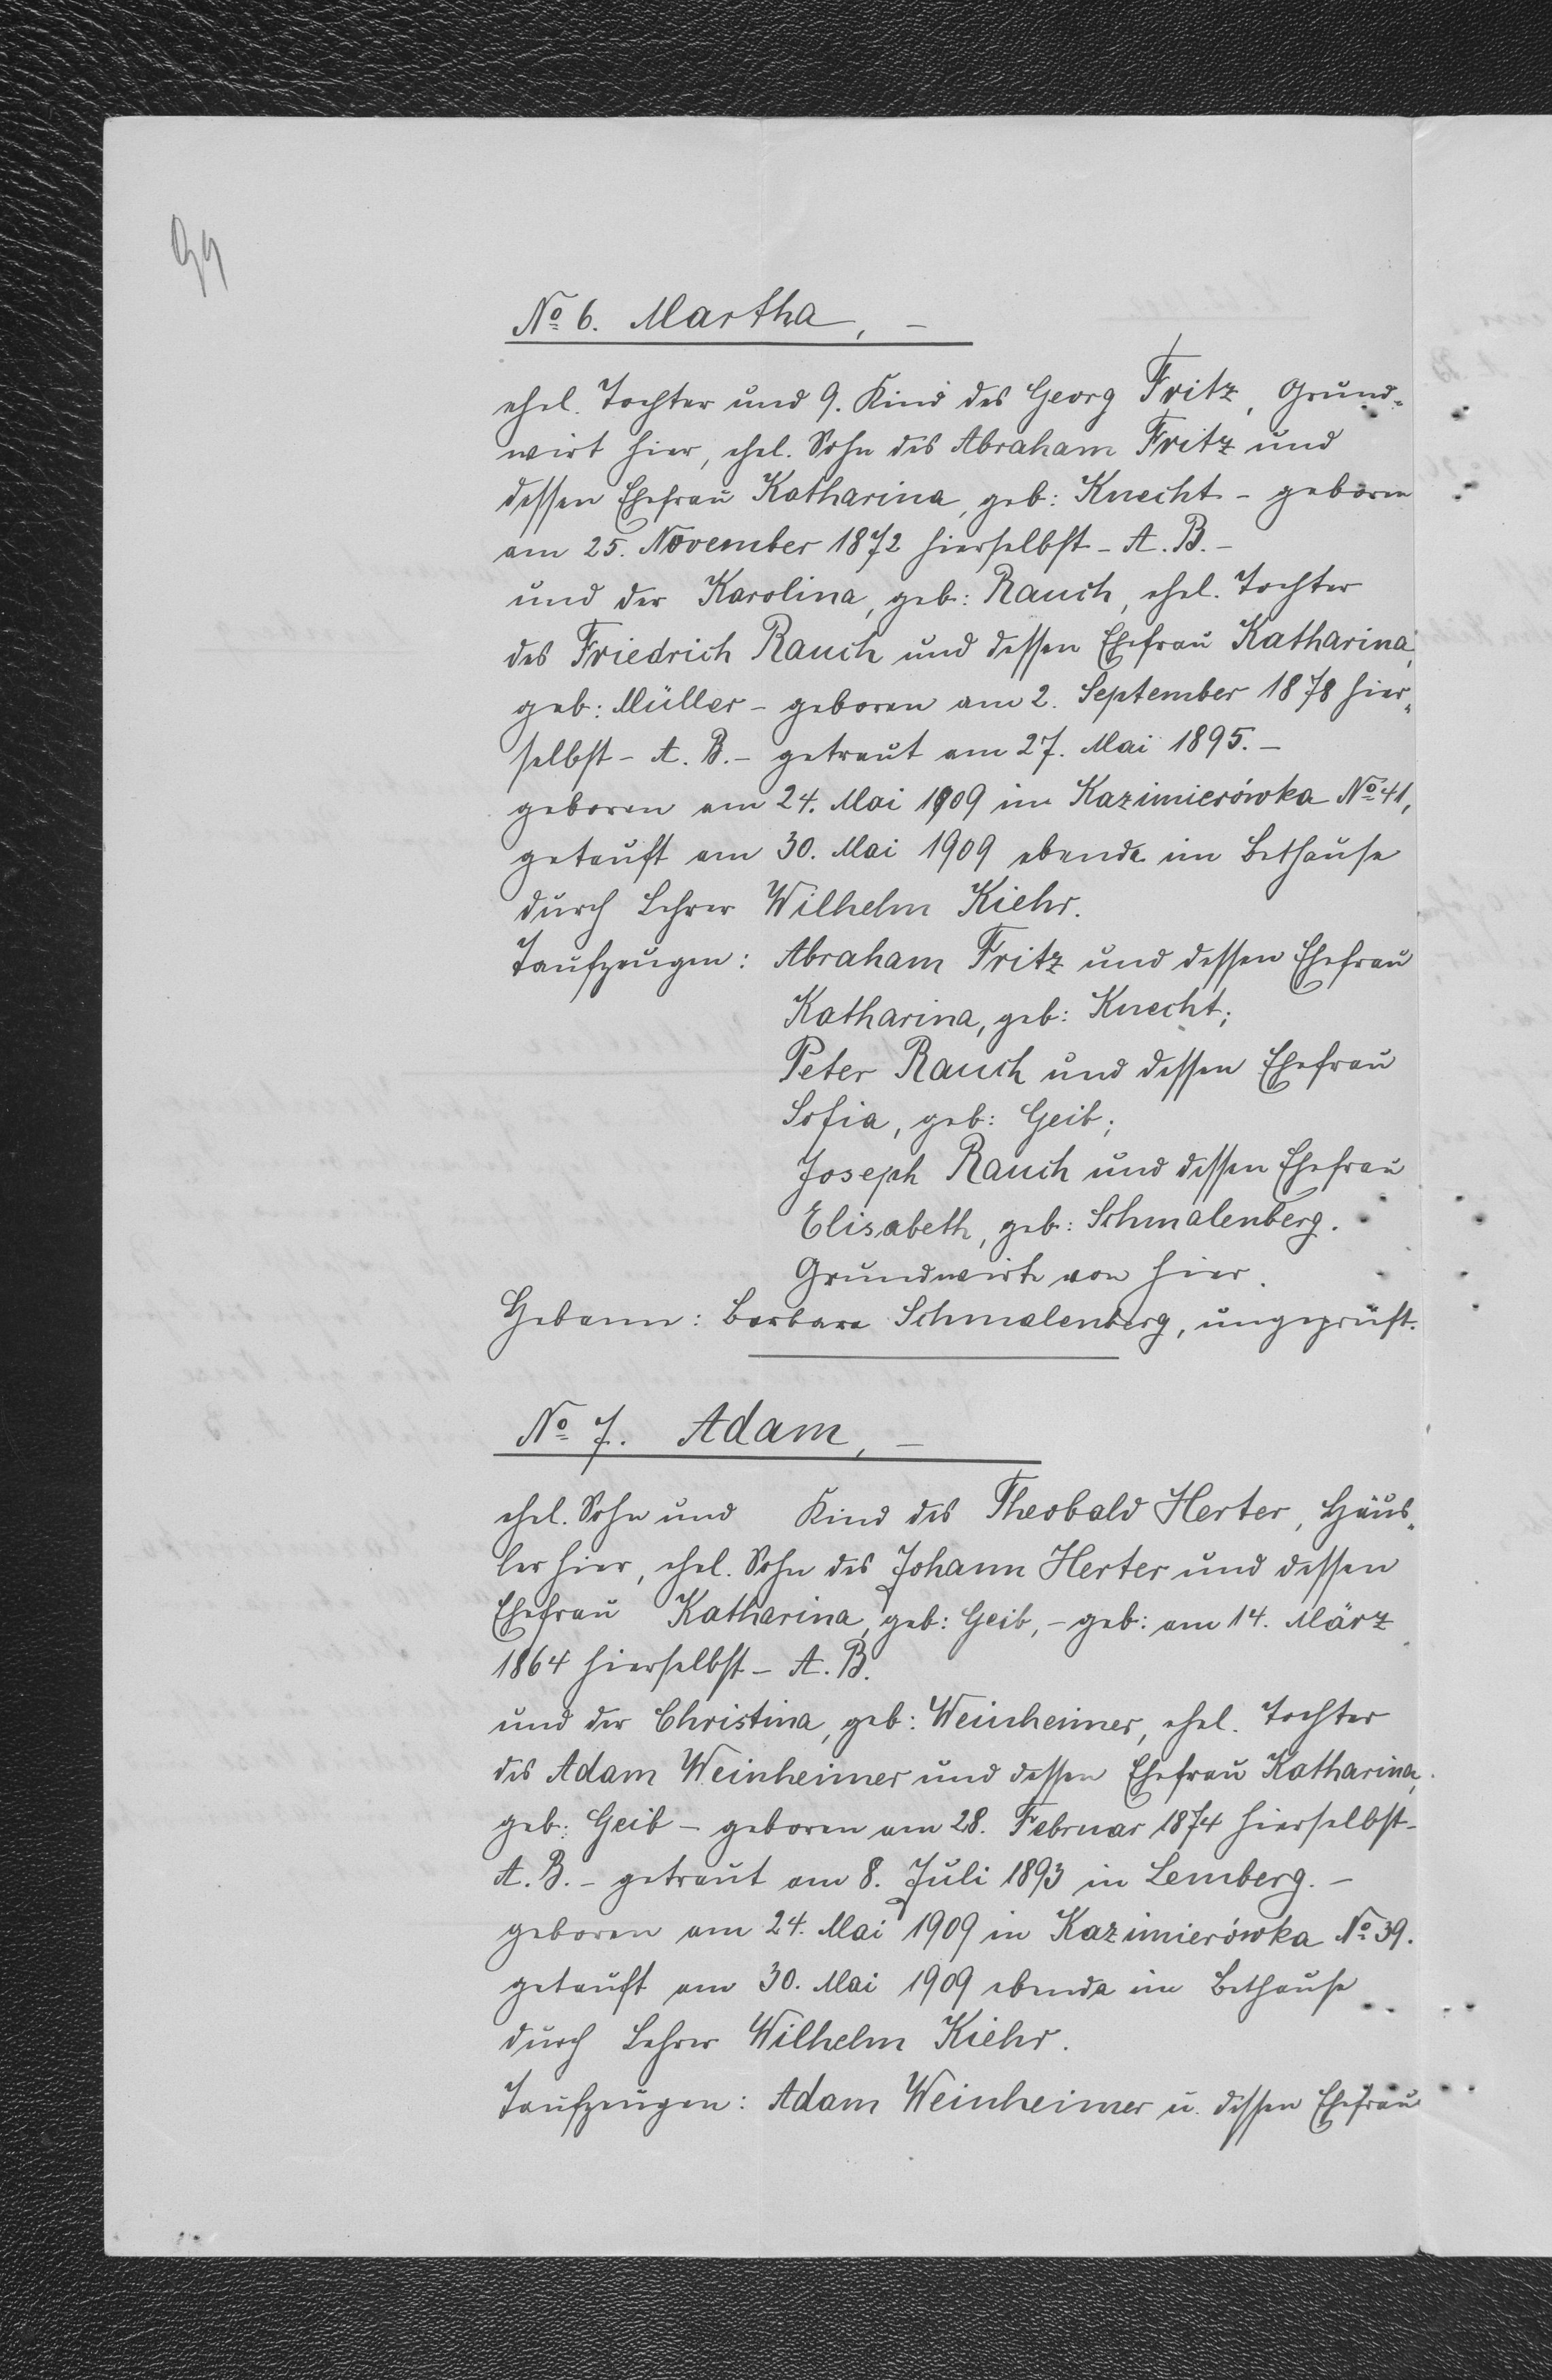 99
№ 6. Martha, –
ehel. Tochter und 9. Kind des Georg Fritz, Grund-
wirt hier, ehel. Sohn des Abraham Fritz und
dessen Ehefrau Katharina, geb: Knecht – geboren
am 25. November 1872 hierselbst – A. B. –
und der Karolina, geb: Rauch, ehel. Tochter
des Friedrich Rauch und dessen Ehefrau Katharina,
geb: Müller – geboren am 2. September 1878 hier-
selbst – A. B. – getraut am 27. Mai 1895. –
geboren am 24. Mai 1909 im Kazimierówka № 41,
getauft am 30. Mai 1909 ebenda im Bethause
durch Lehrer Wilhelm Kiehr.
Taufzeugen: Abraham Fritz und dessen Ehefrau
Katharina, geb: Knecht;
Peter Rauch und dessen Ehefrau
Sofia, geb: Geib;
Joseph Rauch und dessen Ehefrau
Elisabeth, geb: Schmalenberg.
Grundwirte von hier.
Hebamme: Barbara Schmalenberg, ungeprüft.
№ 7. Adam, –
ehel. Sohn und Kind des Theobald Herter, Häus-
ler hier, ehel. Sohn des Johann Herter und dessen
Ehefrau Katharina, geb: Geib, – geb: am 14. März
1864 hierselbst – A. B.
und der Christina, geb: Weinheimer, ehel. Tochter
des Adam Weinheimer und dessen Ehefrau Katharina,
geb: Geib – geboren am 28. Februar 1874 hierselbst –
A. B. – getraut am 8. Juli 1893 in Lemberg. –
geboren am 24. Mai 1909 in Kazimierówka № 39.
getauft am 30. Mai 1909 ebenda im Bethause
durch Lehrer Wilhelm Kiehr.
Taufzeugen: Adam Weinheimer u. dessen Ehefrau